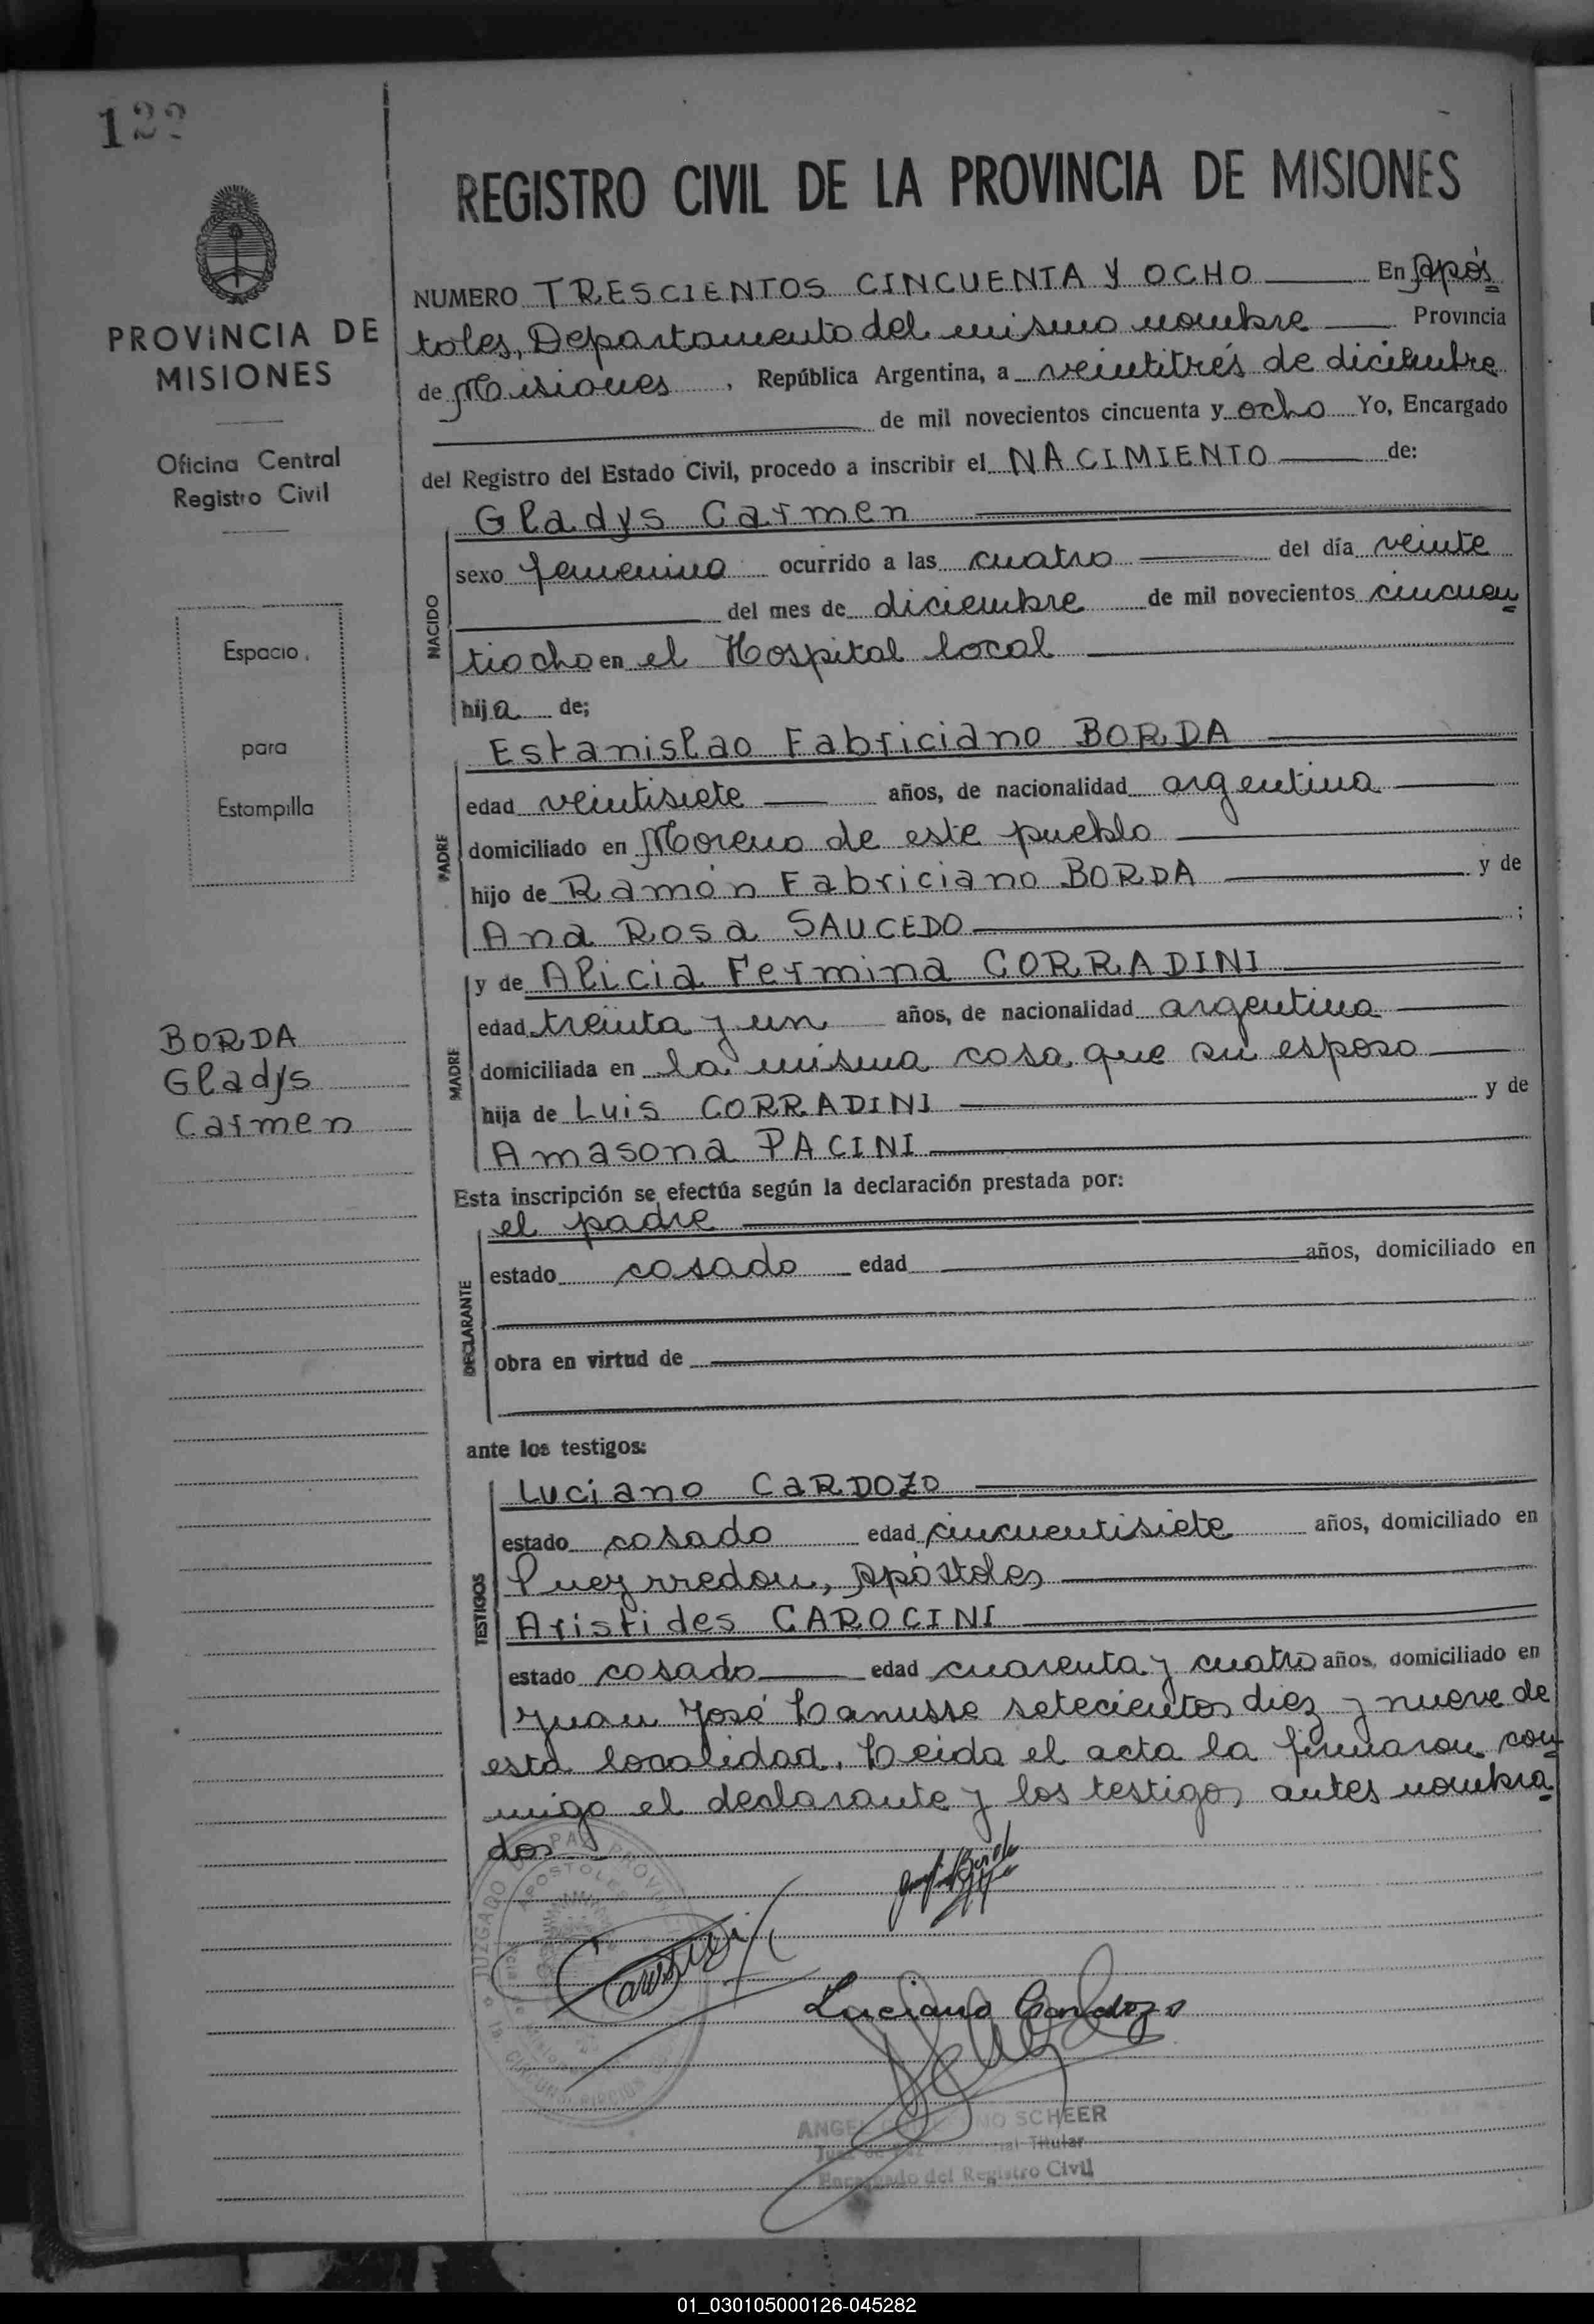 122
PROVINCIA DE
MISIONES
Oficina Central
Registro Civil
Espacio
para
Estampilla
BORDA
Gladys
Carmen
REGISTRO CIVIL DE LA PROVINCIA DE MISIONES
NUMERO TRESCIENTOS CINCUENTA Y OCHO En Após
toles, Departamento del mismo nombre Provincia
de Misiones, República Argentina, a veintitrés de diciembre
de mil novecientos cincuenta y ocho Yo, Encargado
del Registro del Estado Civil, procedo a inscribir el NACIMIENTO de:
Gladys Carmen
NACIDO
sexo femenino ocurrido a las cuatro del día veinte
del mes de diciembre de mil novecientos cincuen
tiocho en el Hospital local
hija de;
Estanislao Fabriciano BORDA
PADRE
edad veintisiete años, de nacionalidad argentina
domiciliado en Moreno de este pueblo
hijo de Ramón Fabriciano BORDA y de
Ana Rosa SAUCEDO ;
y de Alicia Fermina CORRADINI
MADRE
edad treinta y un años, de nacionalidad argentina
domiciliada en la misma casa que su esposo
hija de Luis CORRADINI y de
Amasona PACINI
Esta inscripción se efectúa según la declaración prestada por:
el padre
DECLARANTE
estado casado edad años, domiciliado en
obra en virtud de
ante los testigos:
Luciano CARDOZO
TESTIGOS
estado casado edad cincuentisiete años, domiciliado en
Pueyrredon, Apóstoles
Aristides CAROCINI
estado casado edad cuarenta y cuatro años, domiciliado en
Juan José Lanusse setecientos diez y nueve de
esta localidad. Leida el acta la firmaron con
migo el declarante y los testigos antes nombra
dos.
JUZGADO DE PAZ PROVINCIA
APOSTOLES
CIRCUNSCRIPCION
Luciano Cardozo
ANGEL SCHEER
Juez de Paz Titular
Encargado del Registro Civil
01_030105000126-045282